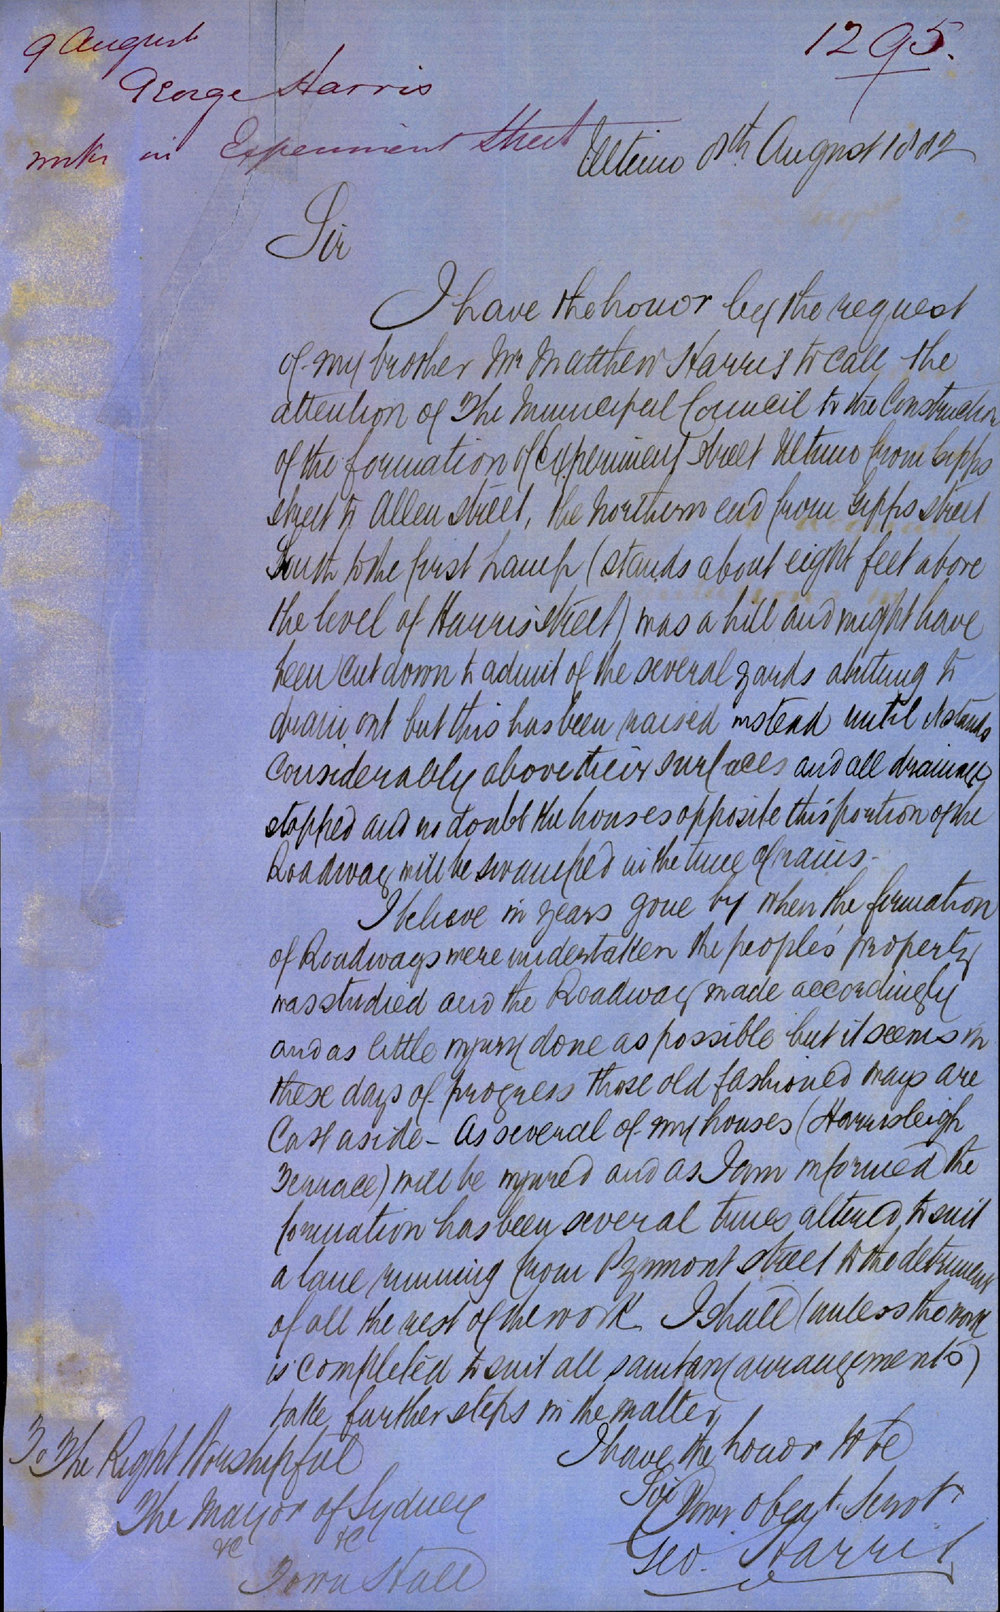 9 August
1295.
George Harris
in Experiment Street
Ultimo 8th August 1882
Sir
I have the honor by the request
of my brother Mr Matthew Harris to call the
attention of The Municipal Council to the Construction
of the formation of Experiment Street Ultimo from Gipps
street to Allen street, the Northern end from Gipps street
South to the first Lamp (stands about eight feet above
the level of Harris Street) was a hill and might have
been cut down to admit of the several yards abutting to
drain out but this has been raised instead until it stands
Considerably above their surfaces and all drainage
stopped and no doubt the houses opposite this portion of the
Roadway will be swamped in the time of rains.
I believe in years gone by when the formation
of Roadways were undertaken the people's property
was studied and the Roadway made accordingly
and as little injury done as possible but it seems in
these days of progress those old fashioned ways are
Cast aside - As several of my houses (Harrisleigh
Terrace) will be injured and as I am informed the
formation has been several times altered, to suit
a lane running from Pyrmont street to the detriment
of all the rest of the work I shall (unless the work
is completed to suit all sanitary arrangements)
take further steps in the matter
I have the honor to be
Sir
Your obeyt. Servt
Geo. Harris
To The Right Worshipful
The Mayor of Sydney
&c &c
Town Hall